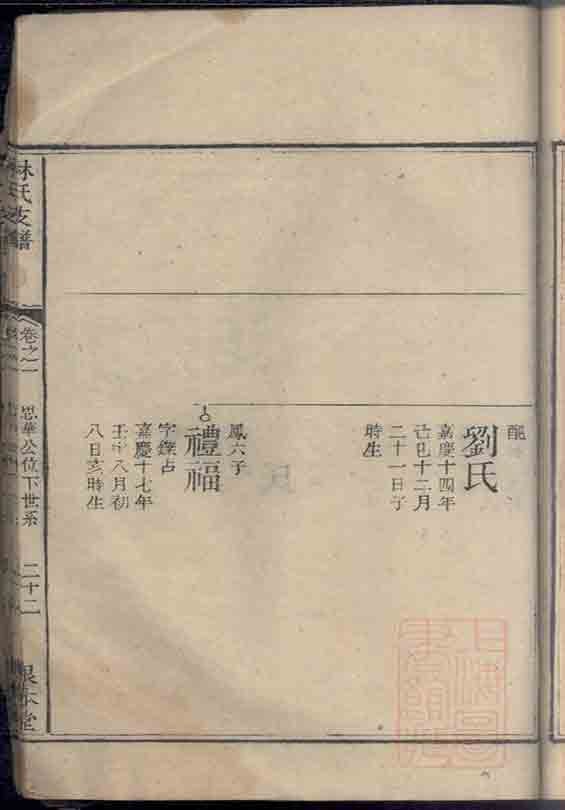 配
劉氏
嘉慶十四年
己巳十二月
二十一日子
時生
鳳六子
禮福
字鏶占
嘉慶十七年
壬申八月初
八日亥時生
林氏支譜
卷之一
思華公位下世系
二十二
根本堂
上海圖
書館藏